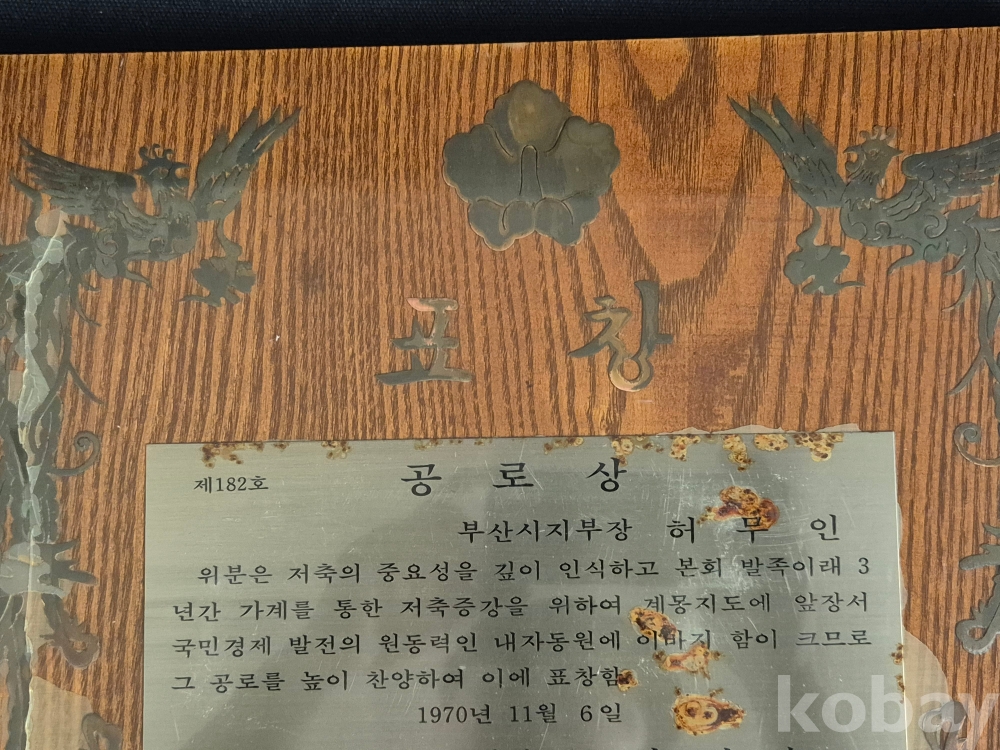 표창
제182호 공로상
부산시지부장 허무인
위분은 저축의 중요성을 깊이 인식하고 본회 발족이래 3
년간 가계를 통한 저축증강을 위하여 계몽지도에 앞장서
국민경제 발전의 원동력인 내자동원에 이바지 함이 크므로
그 공로를 높이 찬양하여 이에 표창함
1970년 11월 6일
kobay